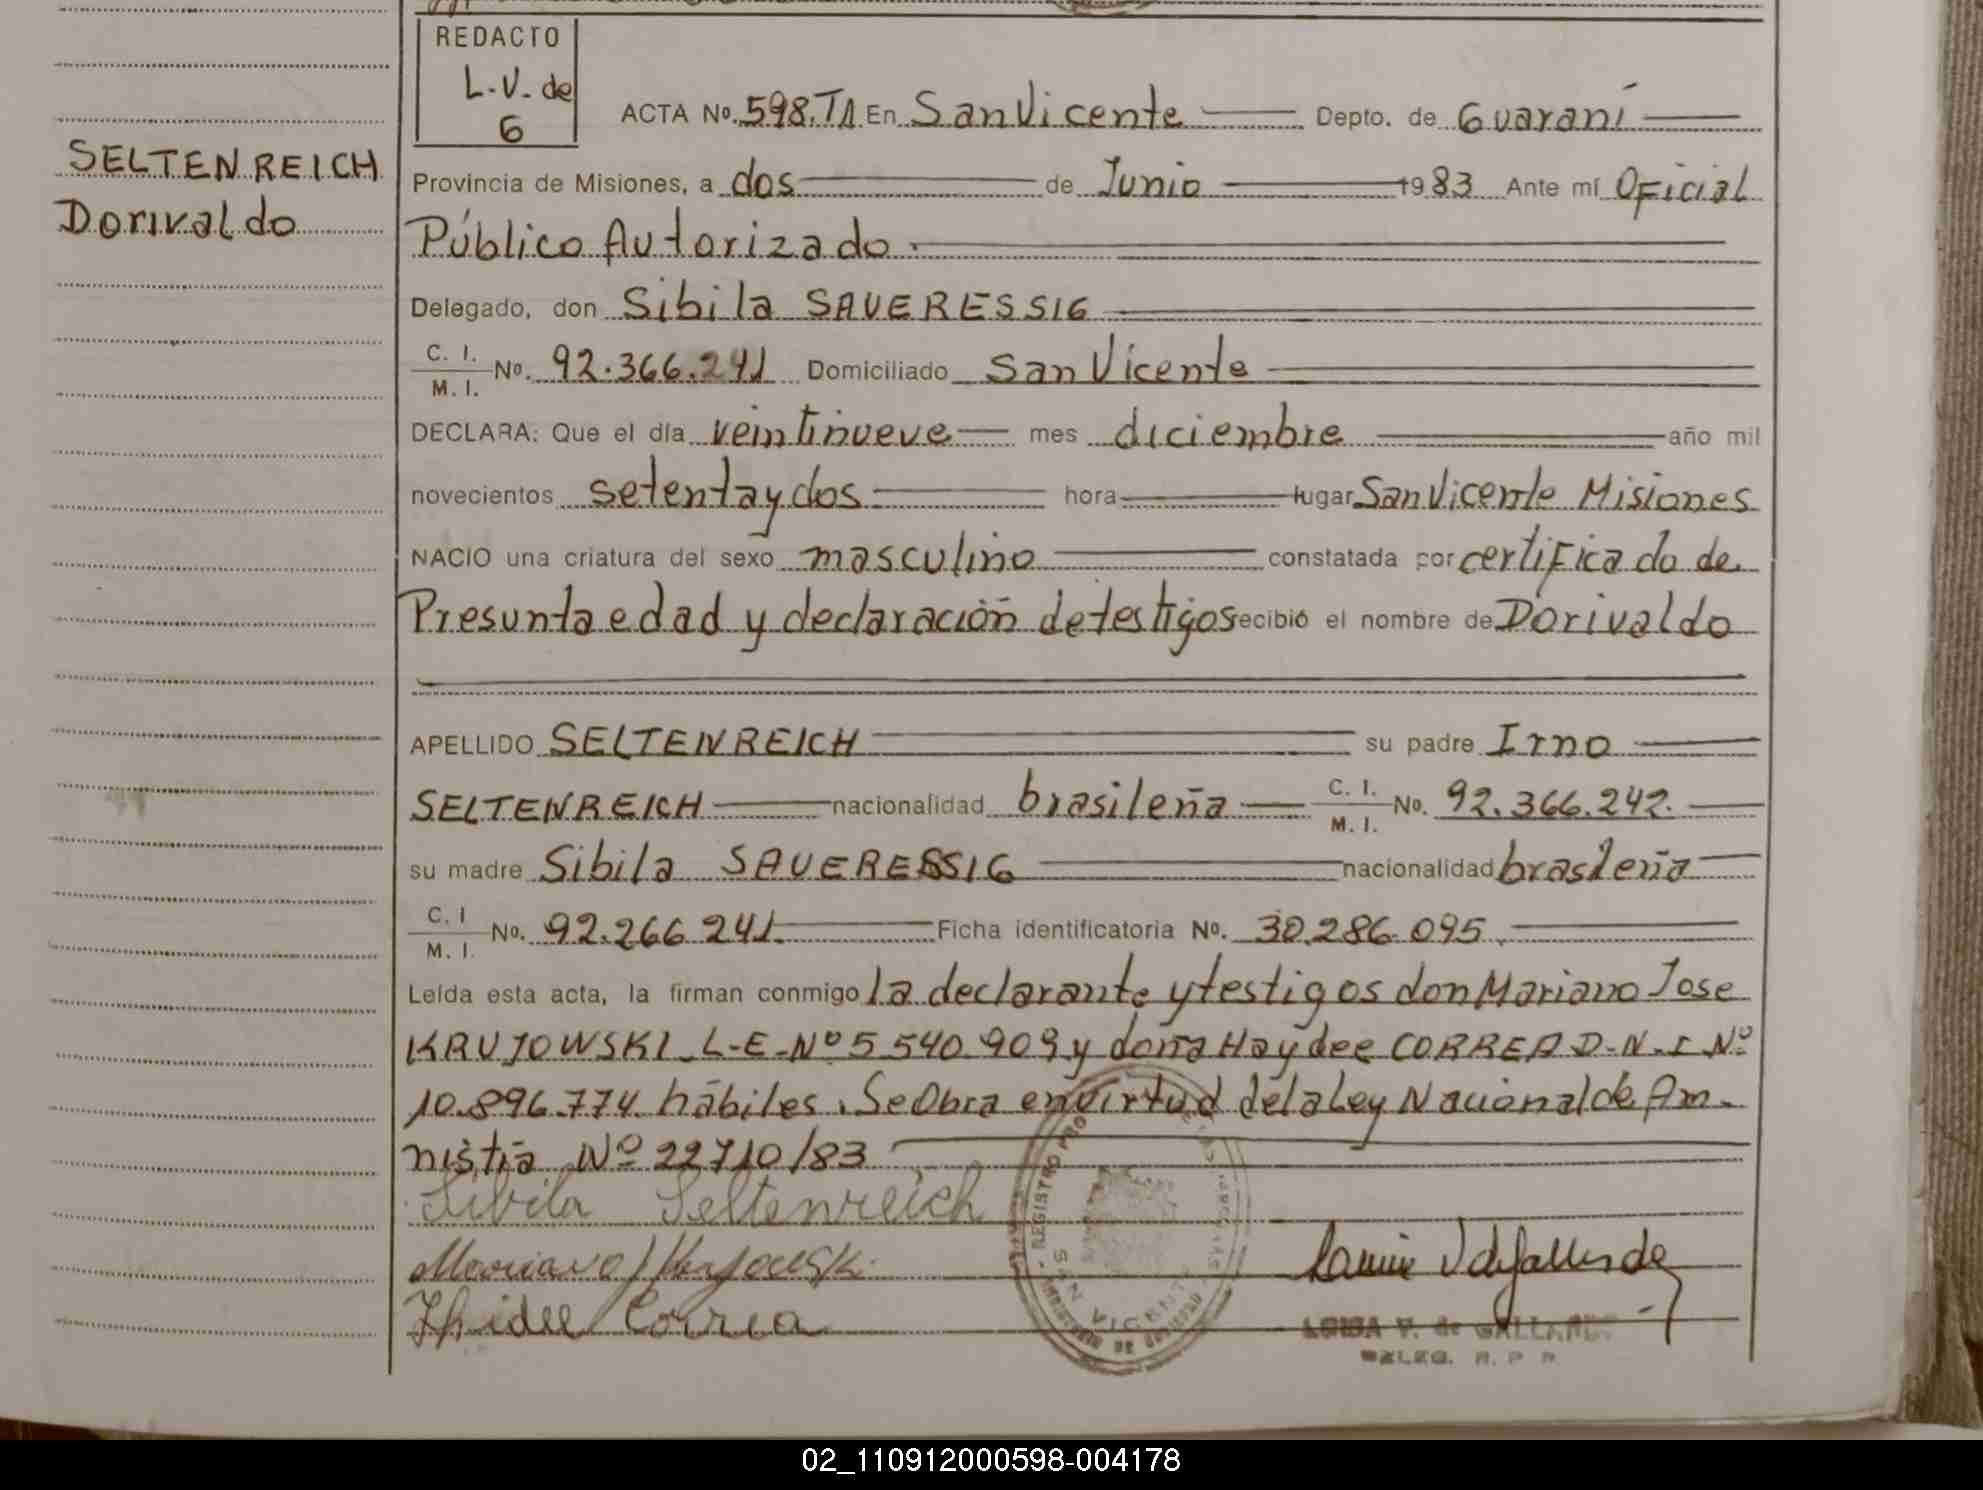 REDACTO
L.V. de
6
SELTENREICH
Dorivaldo
ACTA Nº. 598.TA En San Vicente Depto. de Guaraní
Provincia de Misiones, a dos de Junio 1983 Ante mí Oficial
Público Autorizado.
Delegado, don Sibila SAUERESSIG
C. I. / M. I. Nº. 92.366.241 Domiciliado San Vicente
DECLARA: Que el día veintinueve mes diciembre año mil
novecientos setenta y dos hora lugar San Vicente Misiones
NACIO una criatura del sexo masculino constatada por certificado de
Presunta edad y declaración de testigos recibió el nombre de Dorivaldo
APELLIDO SELTENREICH su padre Irno
SELTENREICH nacionalidad brasileña C. I. / M. I. Nº. 92.366.242.
su madre Sibila SAUERESSIG nacionalidad brasileña
C. I / M. I. Nº. 92.266 241. Ficha identificatoria Nº. 30.286.095.
Leída esta acta, la firman conmigo la declarante y testigos don Mariano Jose
KRUJOWSKI L-E-Nº 5 540.909 y doña Haydee CORREA D-N-I Nº
10.896.774. hábiles. Se Obra en virtud de la Ley Nacional de Am-
nistía Nº 22710/83
Sibila Seltenreich
Correa
REGISTRO PRO
SAN VICENTE
LUISA V. de GALLARDO
DELEG. R. P. P.
02_110912000598-004178